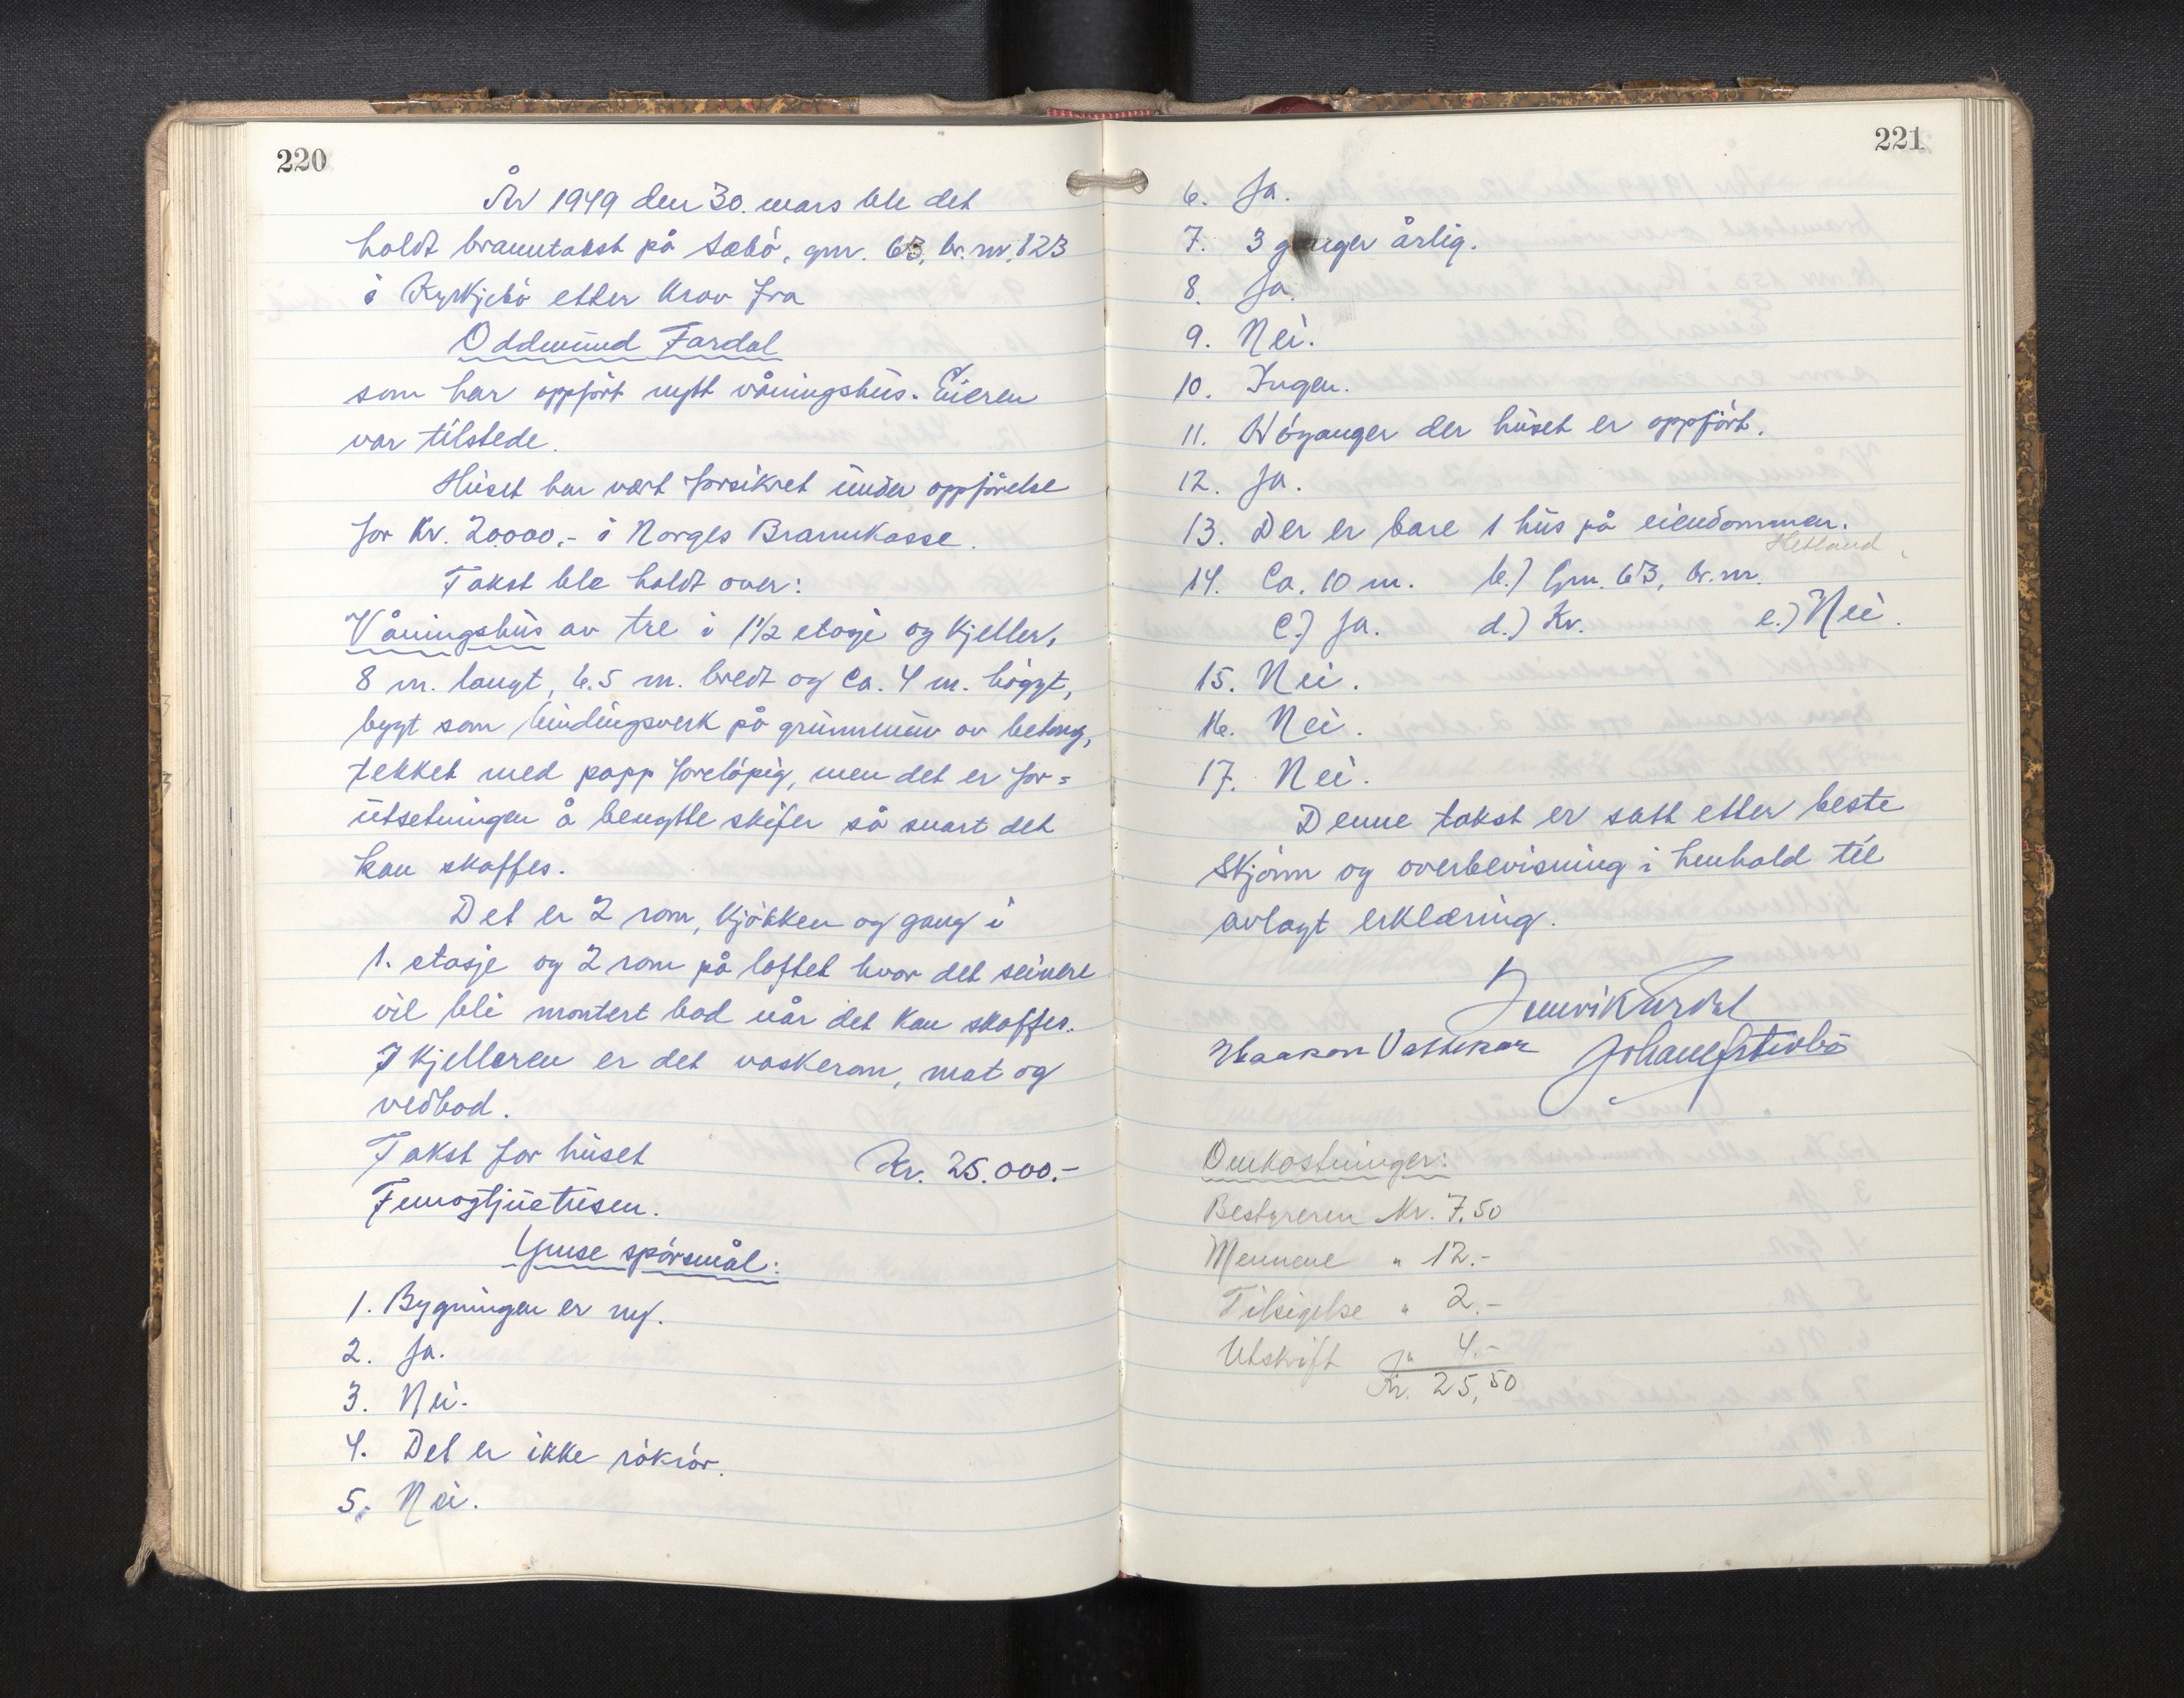 220
År 1949 den 30. mars ble det
holdt branntakst på Sæbö, gnr. 63, br. nr. 123
i Kyrkjebö etter krav fra
Oddmund Fardal
som har oppfört nytt våningshus. Eieren
var tilstede.
Huset har vært forsikret under oppförelse
for kr. 20000,- i Norges Brannkasse.
Takst ble holdt over:
Våningshus av tre i 1 1/2 etasje og kjeller,
8 m. langt, 6.5 m. bredt og ca. 4 m. höggt,
bygt som bindingsverk på grunnmur av betong,
tekket med papp forelöpig, men det er for=
utsetningen å benytte skifer så snart det
kan skaffes.
Det er 2 rom, kjökken og gang i
1. etasje og 2 rom på loftet hvor det seinere
vil bli montert bad når det kan skaffes.
I kjelleren er det vaskerom, mat og
vedbod.
Takst for huset Kr. 25.000.-
Femogtjuetusen.
Ymse spörsmål:
1. Bygningen er ny.
2. Ja.
3. Nei.
4. Det er ikke rökrör.
5. Nei.
221
6. Ja.
7. 3 ganger årlig.
8. Ja.
9. Nei.
10. Ingen.
11. Höyanger der huset er oppfört.
12. Ja.
13. Der er bare 1 hus på eiendommen.
Hetland
14. Ca. 10 m. b.) Gnr. 63, br. nr.
c.) Ja. d.) Kr. e.) Nei.
15. Nei.
16. Nei.
17. Nei.
Denne takst er satt etter beste
skjönn og overbevisning i henhold til
avlagt erklæring.
Haakon
Omkostninger:
Bestyreren Kr. 7.50
Mennene " 12.-
Tilsigelse " 2.-
Utskrift " 4.-
Kr. 25,50